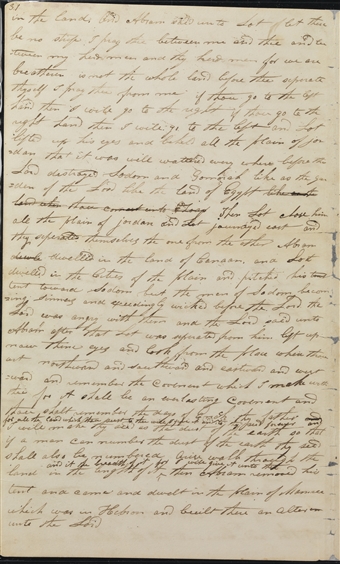 51
in the land, And Abram said unto Lot let there
be no strife I pray the between me and thee and be
tween my herdmen and thy herdmen for we are
breatheren is not the whole land before thee seperate
thyself I pray thee from me if thou go to the left
hand then I will go to the right if thou go to the
right hand then I will go to the left an Lot
lifted up his eyes and behel all the plain of jor
-dan that it was well wattered evry where before the
Lord destroyed Sodom and Gomorah like as the ga
rden of the Lord like the land of Egypt
Then Lot chose him
all the plain of jordan and Lot journayed east and
they seperated themselves the one from the other Abram
dwelled in the land of Canaan, and Lot
dwelled in the Cities of the plain and pitched his
tent toward Sodom but the men of Sodom becom
ing sinners and exceedingly wicked before the Lord the
Lord was angry with them and the Lord said unto
Abram after that Lot was seperate from him Lift up
now thine eyes and look from the place where thou
art northward and southward and eastward and west
-ward and remember the Covenant which I make with
thee for it shall be an everlasting Covenant and
thou shalt remember the days of Enoch thy father
for all the land which thou seest to thee will I give it and to thy seed forever and
I will make thy seed as the dust of the earth so that
if a man can number the dust of the earth thy seed
shall also be numbered Arise walk through the
land in the length of it and in the breadth of it for I will give it unto thee then Abram removed his
tent and came and dwelt in the plain of Mamre
which was in Hebron and built there an Alter
unto the Lord